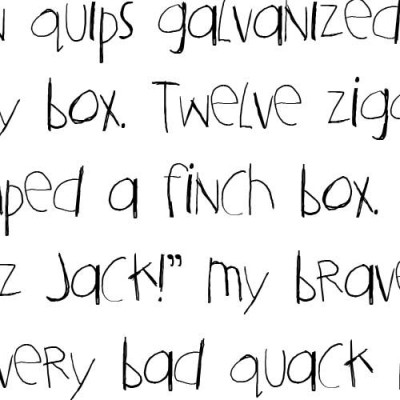 quips galvanized
y box. Twelve zigz
ped a finch box.
z Jack!" my brave
very bad quack